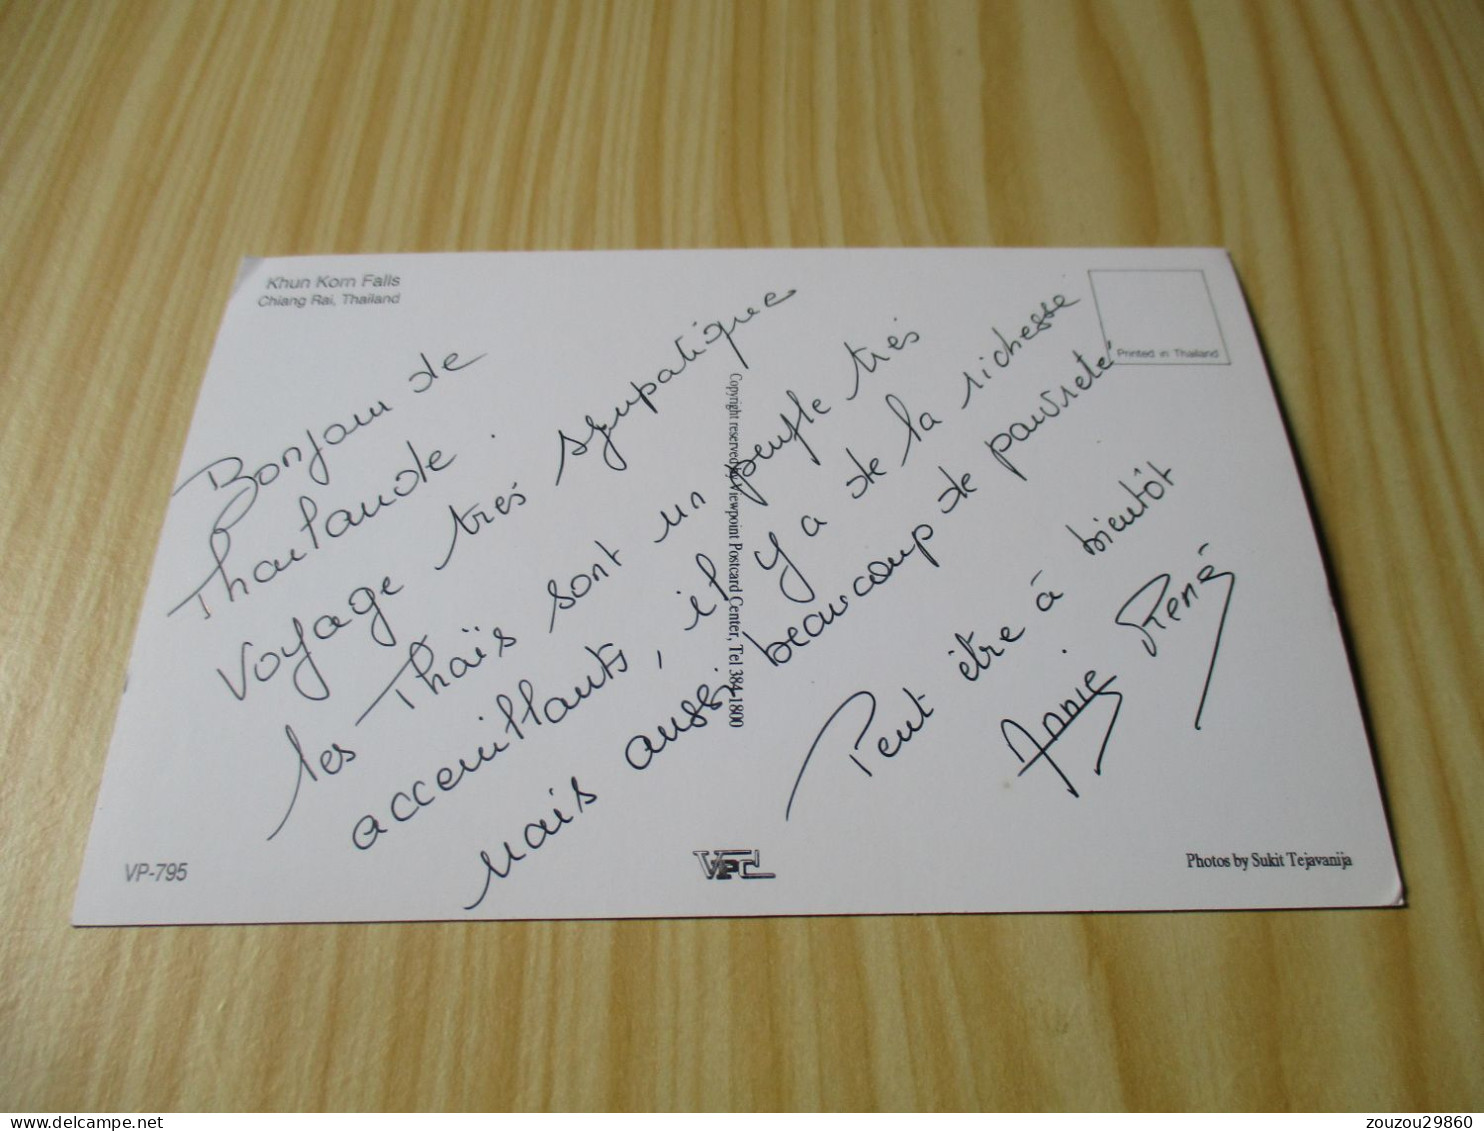 Khun Korn Falls
Chiang Rai, Thailand
Printed in Thailand
Bonjour de
Thaïlande.
Voyage très sympatique
les Thaïs sont un peuple très
acceuillants, il y a de la richesse
Mais aussi beaucoup de pauvreté
Peut être à bientôt
Annie René
Copyright reserved by Viewpoint Postcard Center, Tel 384-1800
VP-795
VPC
Photos by Sukit Tejavanija
zouzou29860